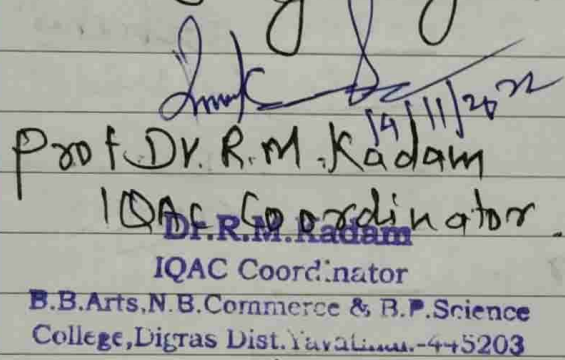 14/11/2022
Prof. Dr. R.M. Kadam
IQAC Coordinator.
Dr.R.M.Kadam
IQAC Coordinator
B.B.Arts,N.B.Commerce & B.P.Science
College,Digras Dist.Yavatmal.-445203